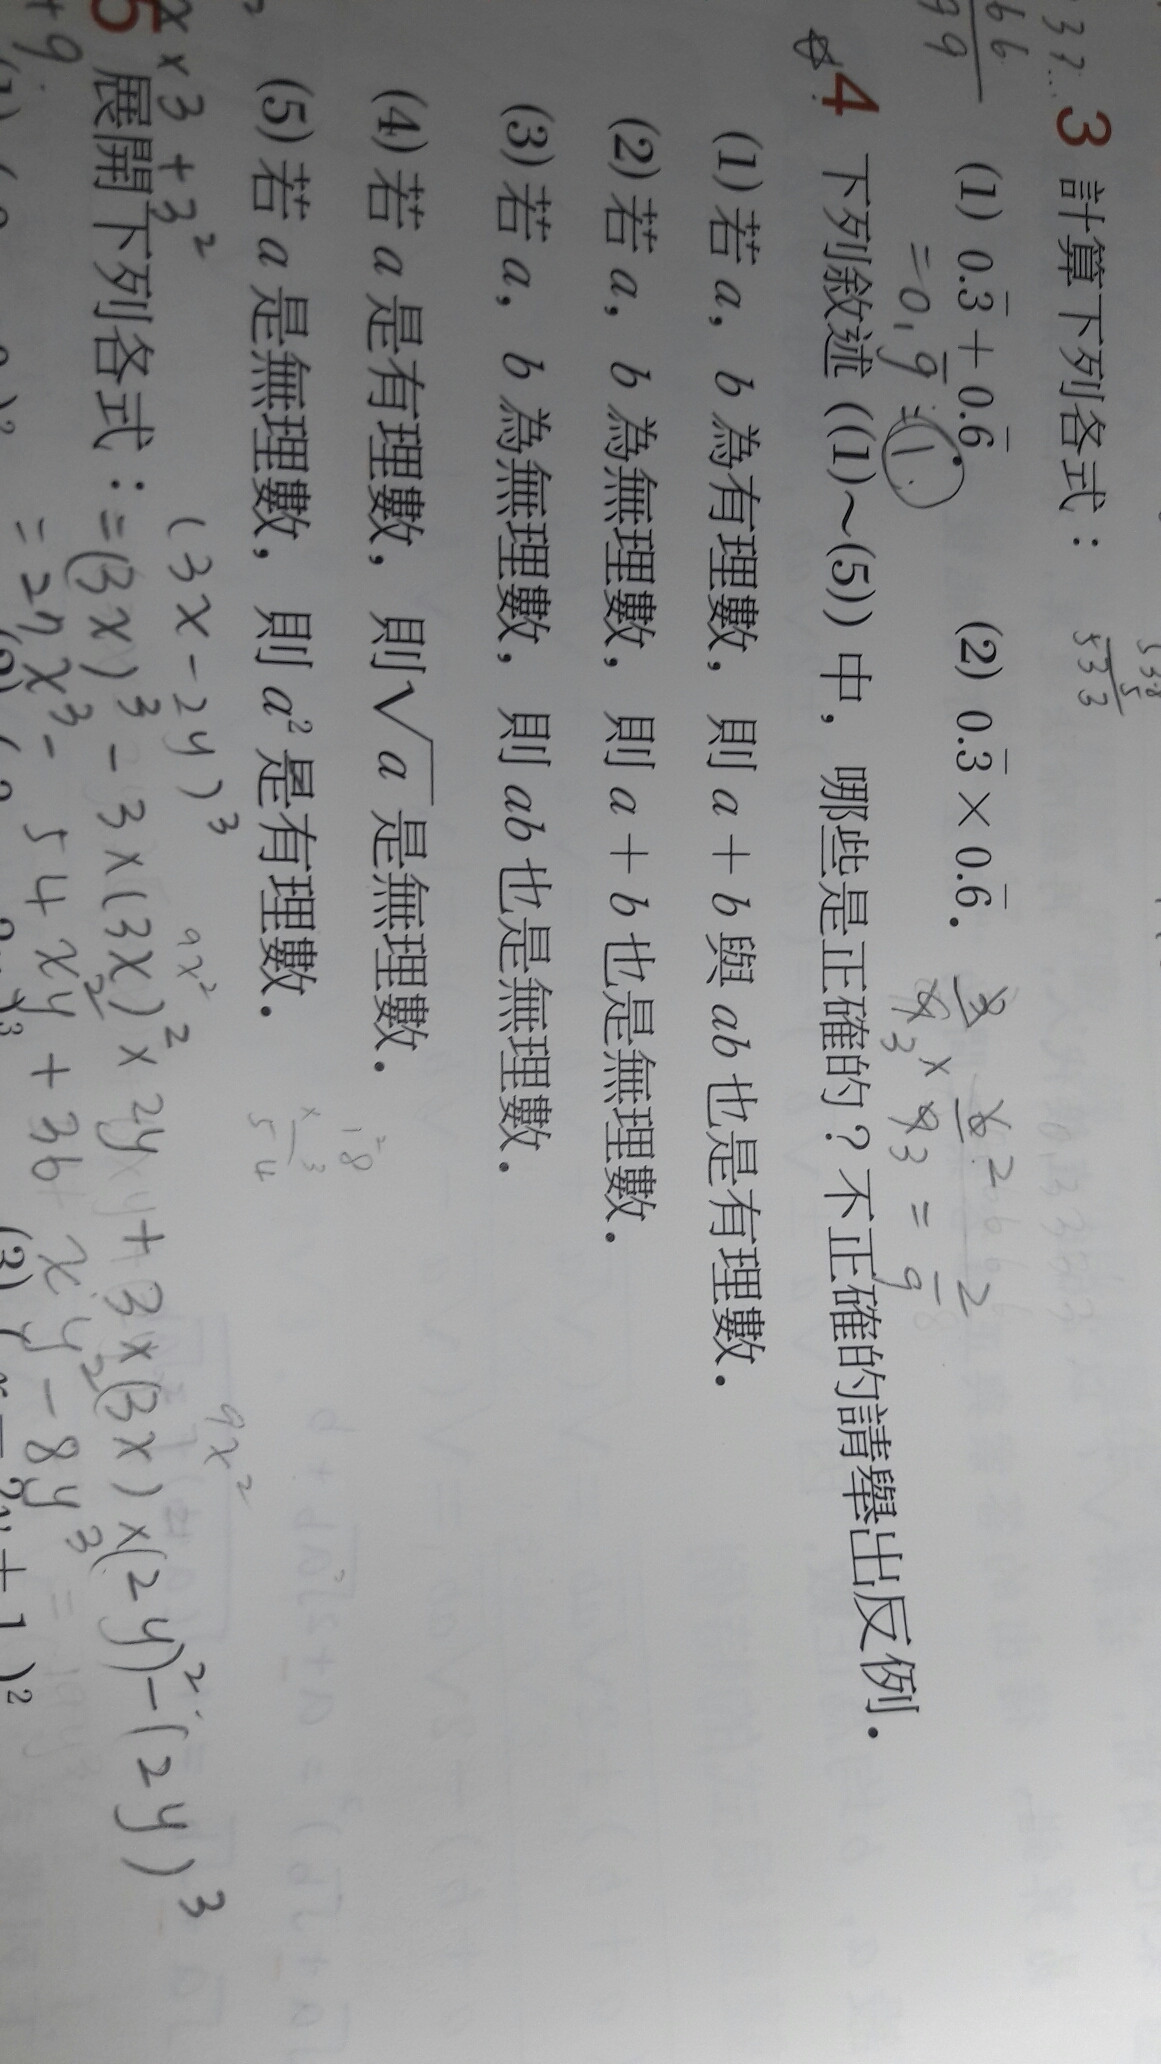 3 計算下列各式：
(1) 0.3̅ + 0.6̅ (2) 0.3̅ × 0.6̅.
= 0.9̅ = 1.
4 下列敘述 ((1)～(5)) 中，哪些是正確的？不正確的請舉出反例.
(1) 若 a，b 為有理數，則 a + b 與 ab 也是有理數.
(2) 若 a，b 為無理數，則 a + b 也是無理數.
(3) 若 a，b 為無理數，則 ab 也是無理數.
(4) 若 a 是有理數，則 √a 是無理數.
18
× 3
54
(5) 若 a 是無理數，則 a² 是有理數.
9x²
9x²
x × 3 + 3²
(3x - 2y)³
5 展開下列各式：
= (3x)³ - 3 × (3x)² × 2y + 3 × (3x) × (2y)² - (2y)³
+ 9
= 27x³ - 54x²y + 36xy² - 8y³